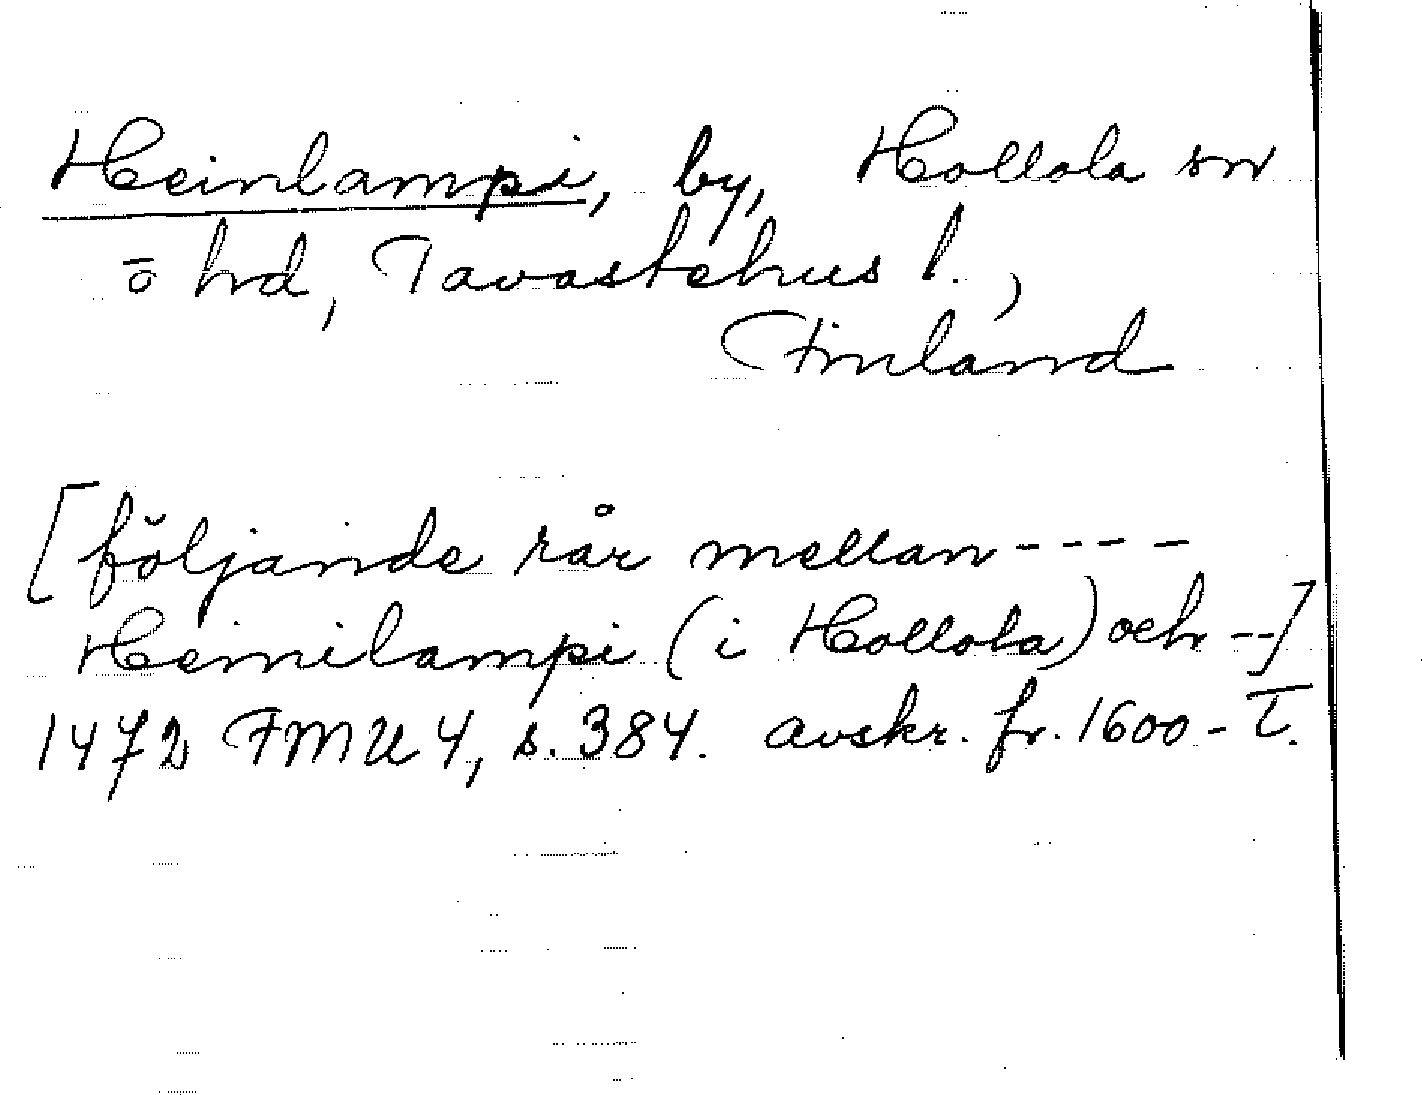 Heinlampi, by, Hollola sn
o hd, Tavastehus l.,
Finland
[följande rår mellan----
Heinilampi (i Hollola) och --]
1472 FMU 4, s. 384. avskr. fr. 1600-t.